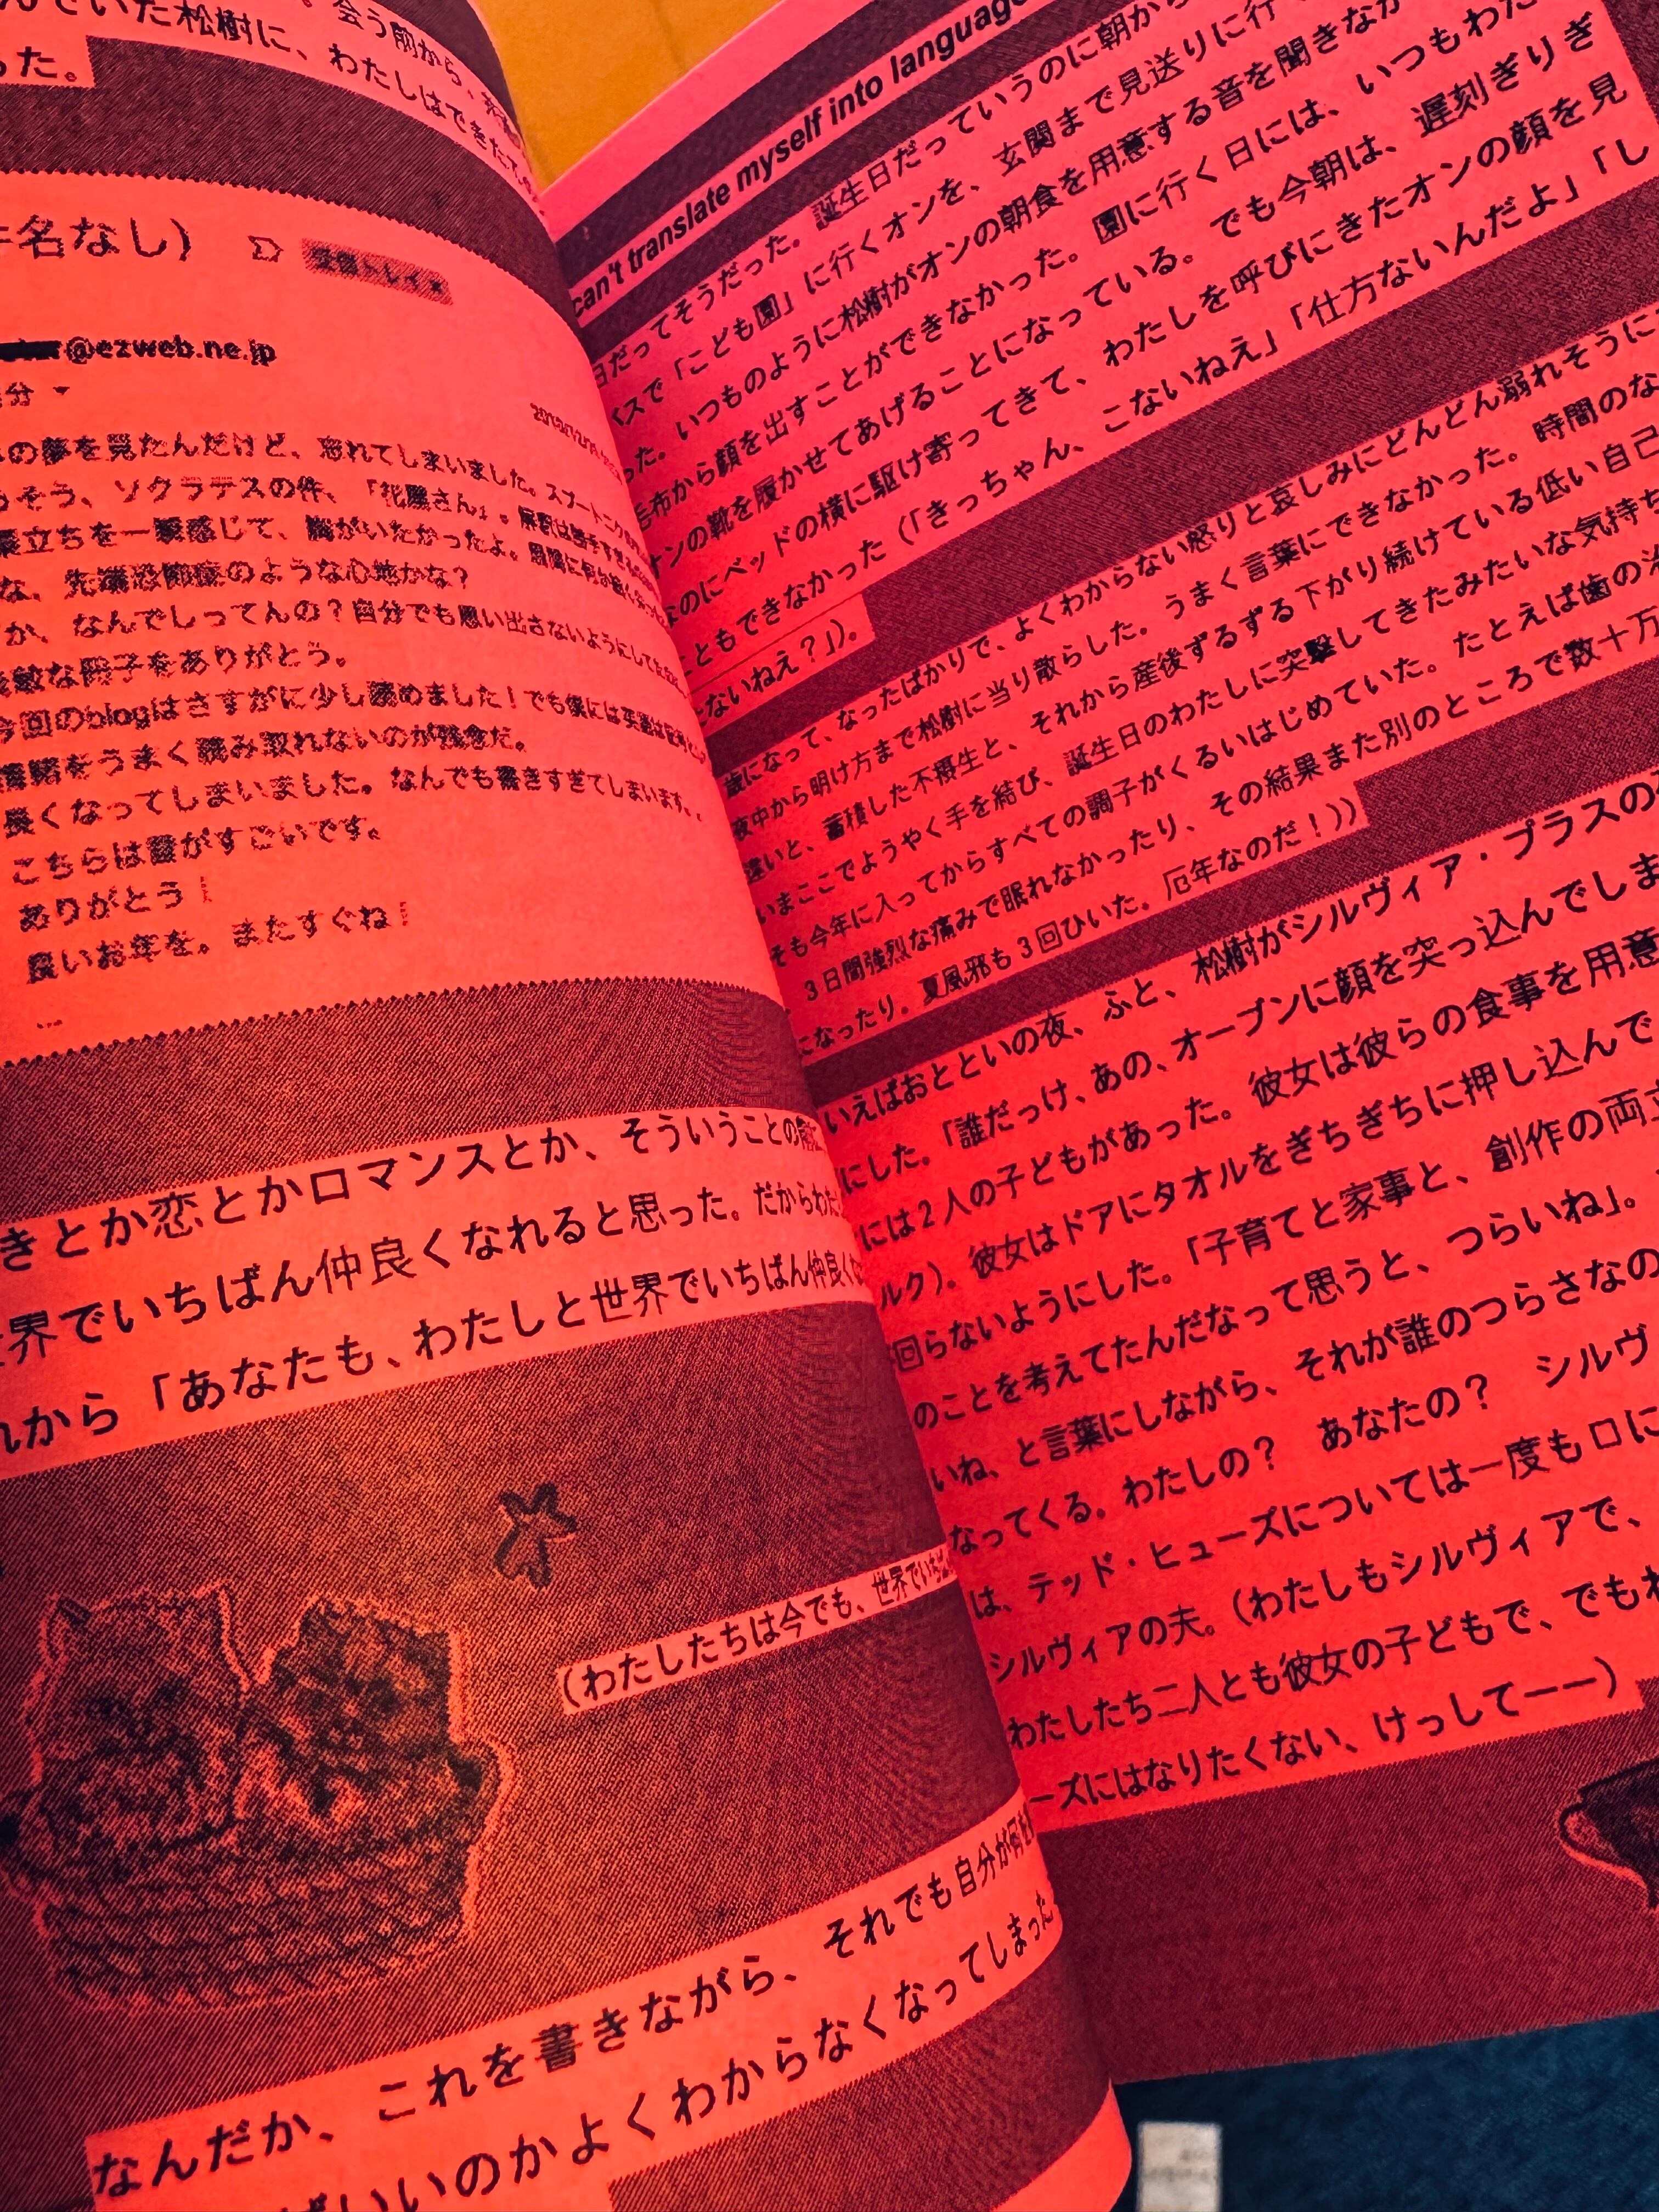 んでいた松樹に、わたしはできたて
会う前から、
った。
名なし)
@ezweb.ne.jp
分
の夢を見たんだけど、忘れてしまいました。スプートニク
そう、ソクラテスの件、「花屋さん」。
立ちを一瞬感じて、胸がいたかったよ。
な、先端恐怖症のような心地かな?
か、なんでしってんの?自分でも思い出さないようにして
敏な冊子をありがとう。
今回のblogはさすがに少し読めました!でも僕には英語は
情緒をうまく読み取れないのが残念だ。
長くなってしまいました。なんでも書きすぎてしまいます。
こちらは雪がすごいです。
ありがとう!
良いお年を。またすぐね!
...
きとか恋とかロマンスとか、そういうことの前に
世界でいちばん仲良くなれると思った。だからわた
れから「あなたも、わたしと世界でいちばん仲良く
(わたしたちは今でも、世界でいち
なんだか、これを書きながら、それでも自分が何を
ばいいのかよくわからなくなってしまった
can't translate myself into language
日だってそうだった。誕生日だっていうのに朝から
バスで「こども園」に行くオンを、玄関まで見送りに行
った。いつものように松樹がオンの朝食を用意する音を聞きなが
毛布から顔を出すことができなかった。園に行く日には、いつもわた
オンの靴を履かせてあげることになっている。でも今朝は、遅刻ぎりぎ
なのにベッドの横に駆け寄ってきて、わたしを呼びにきたオンの顔を見
こともできなかった(「きっちゃん、こないねえ」「仕方ないんだよ」「し
たないねえ?」)。
歳になって、なったばかりで、よくわからない怒りと哀しみにどんどん溺れそうに
夜中から明け方まで松樹に当り散らした。うまく言葉にできなかった。時間のな
遠いと、蓄積した不摂生と、それから産後ずるずる下がり続けている低い自己
いまここでようやく手を結び、誕生日のわたしに突撃してきたみたいな気持ち
そも今年に入ってからすべての調子がくるいはじめていた。たとえば歯の治
3日間強烈な痛みで眠れなかったり、その結果また別のところで数十万
になったり。夏風邪も3回ひいた。厄年なのだ!))
いえばおとといの夜、ふと、松樹がシルヴィア・プラスの
にした。「誰だっけ、あの、オーブンに顔を突っ込んでしま
には2人の子どもがあった。彼女は彼らの食事を用意
ルク)。彼女はドアにタオルをぎちぎちに押し込んで
回らないようにした。「子育てと家事と、創作の両立
のことを考えてたんだなって思うと、つらいね」。
いね、と言葉にしながら、それが誰のつらさなの
なってくる。わたしの? あなたの? シルヴ
は、テッド・ヒューズについては一度も口に
シルヴィアの夫。(わたしもシルヴィアで、
わたしたち二人とも彼女の子どもで、でもわ
ーズにはなりたくない、けっしてーー)